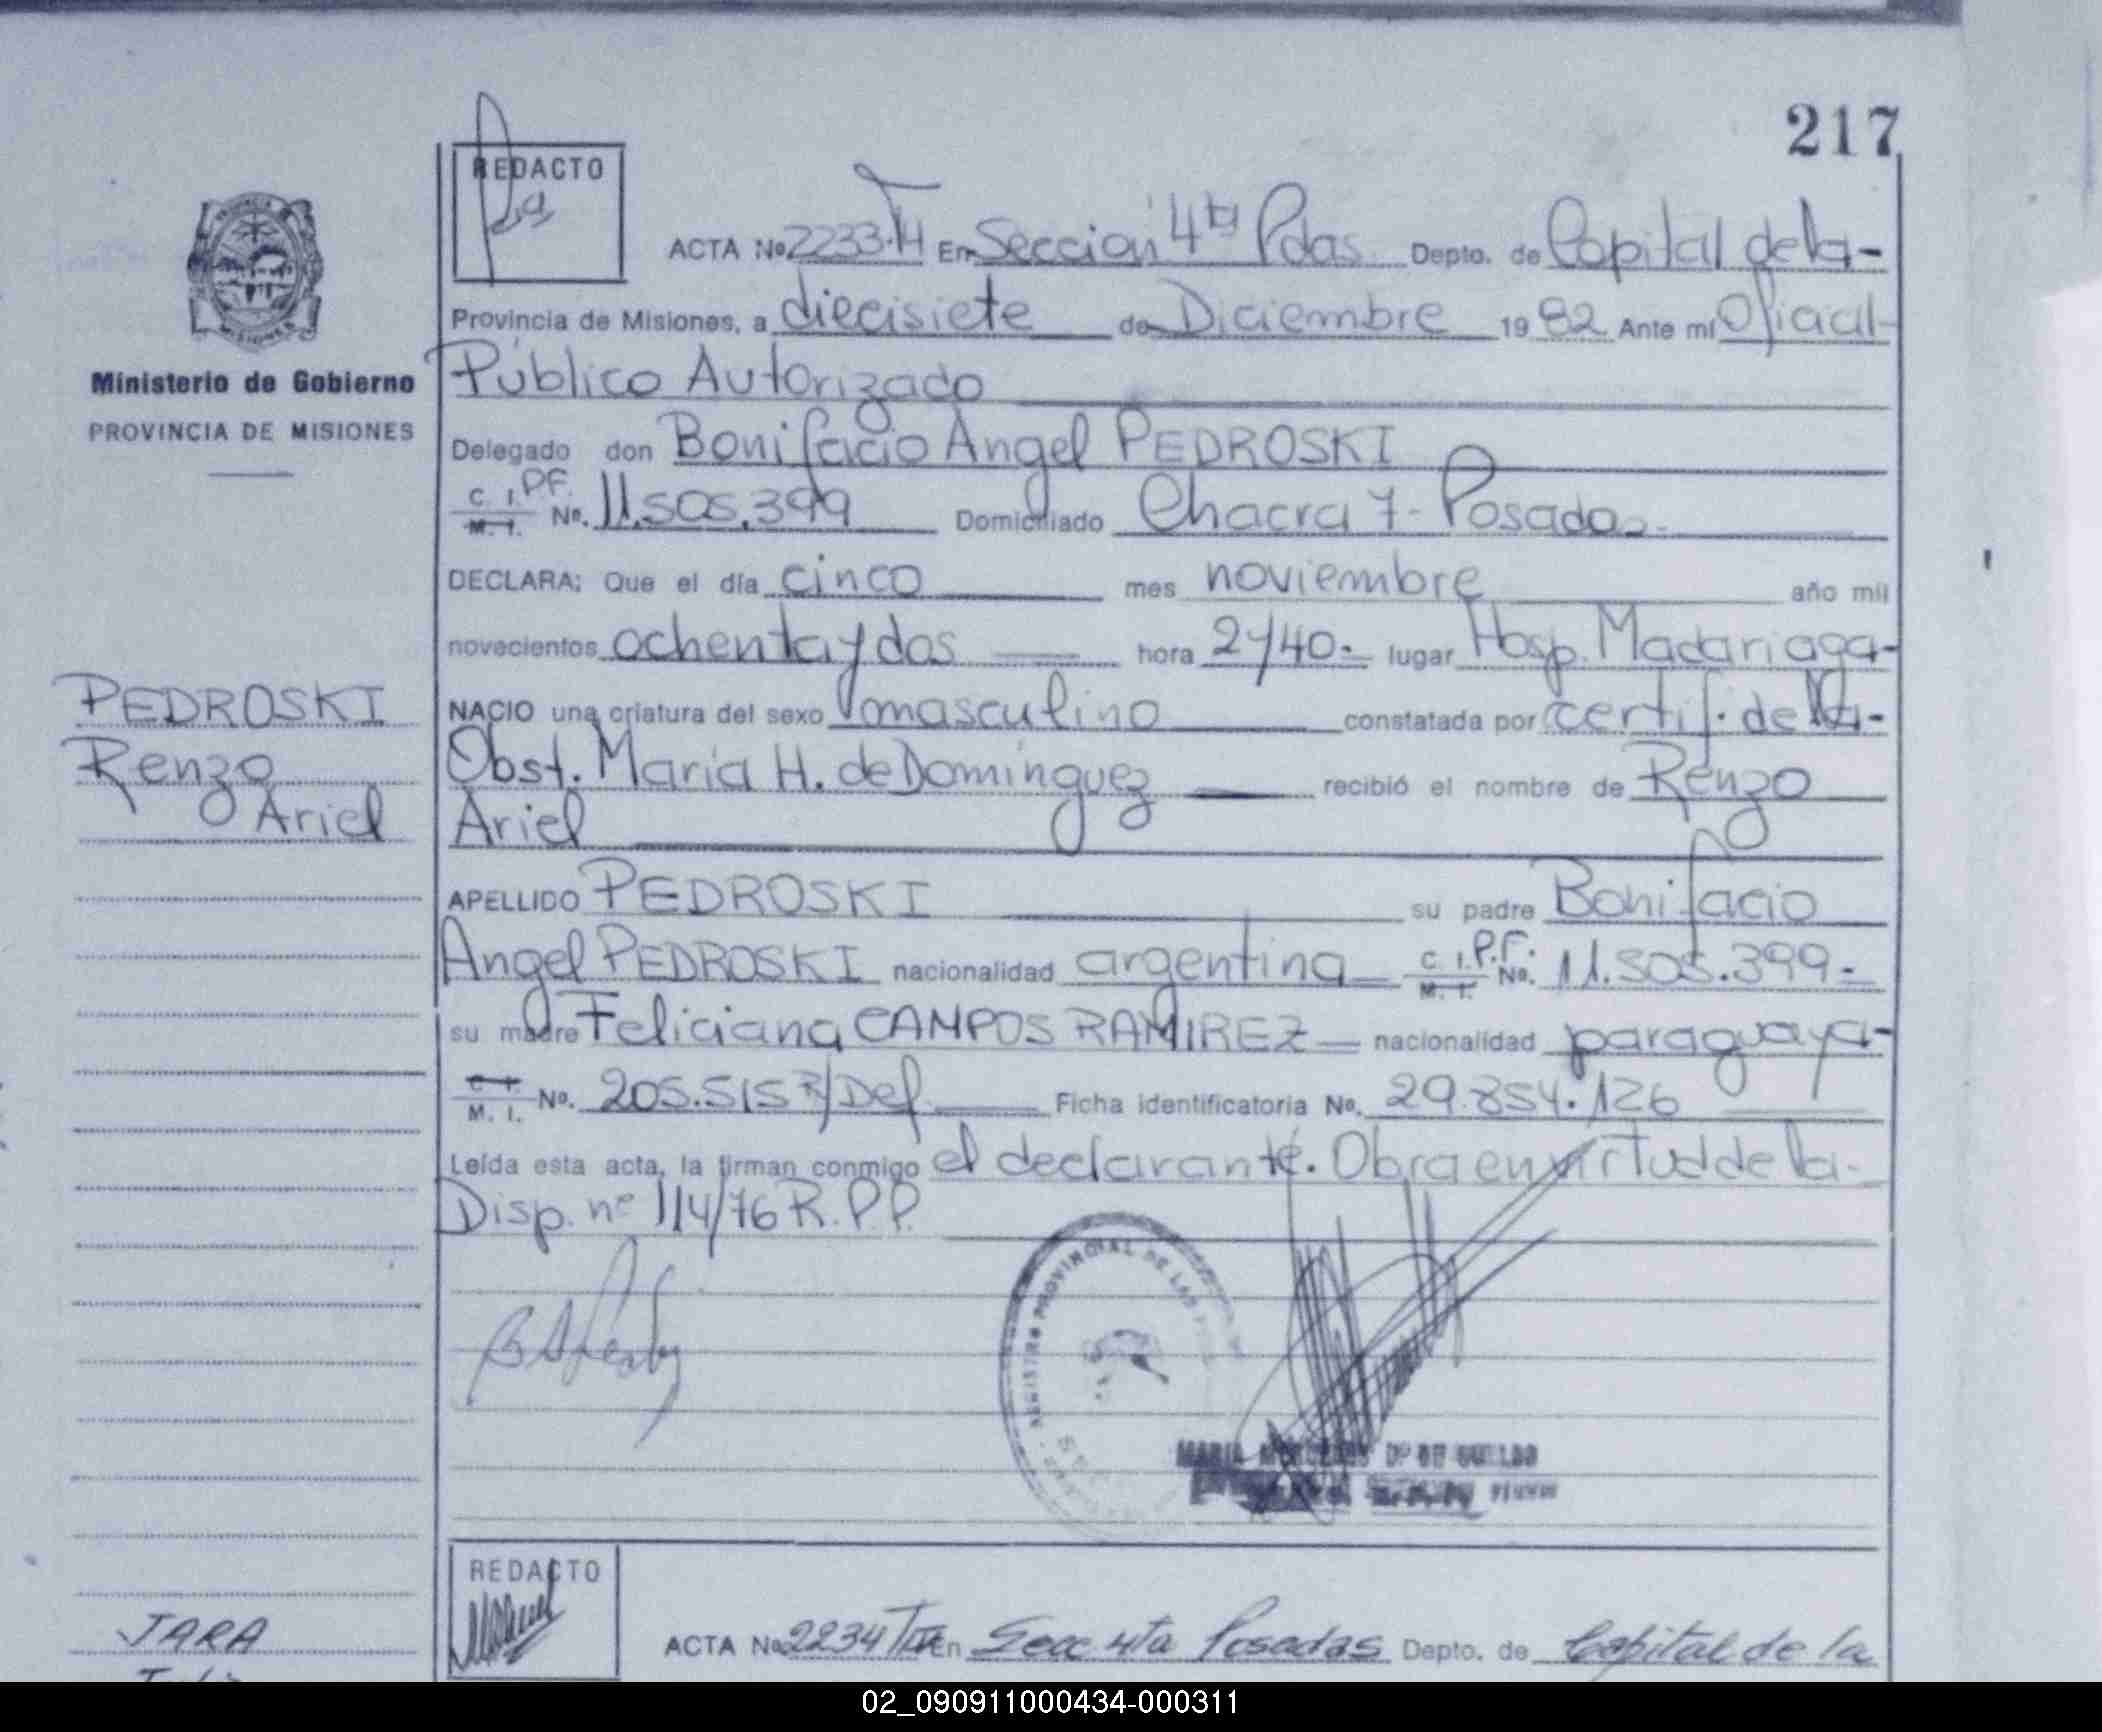 217
REDACTO
ACTA No 2233. TH En Sección 4ta Pdas. Depto. de Capital de la-
Provincia de Misiones, a diecisiete de Diciembre 19 82 Ante mí Oficial-
Público Autorizado
Ministerio de Gobierno
PROVINCIA DE MISIONES
Delegado don Bonifacio Angel PEDROSKI
C. I. P.F. M. I. No. 11.505.399 Domiciliado Chacra 7- Posadas-
DECLARA: Que el día cinco mes noviembre año mil
novecientos ochenta y dos hora lugar Hosp. Madariaga-
PEDROSKI
Renzo
Ariel
NACIO una criatura del sexo masculino constatada por certif. de la-
Obst. María H. de Domínguez recibió el nombre de Renzo
Ariel
APELLIDO PEDROSKI su padre Bonifacio
Angel PEDROSKI nacionalidad argentina C. I. P.F. M. I. No. 11.505.399.-
su madre Feliciana CAMPOS RAMIREZ nacionalidad paraguaya-
C. I. M. I. No. Ficha identificatoria No. 29.854.126
Leída esta acta, la firman conmigo el declarante. Obra en virtud de la-
Disp. nº 114/76 R.P.P.
REGISTRO PROVINCIAL DE LAS
MARIA DE
REDACTO
JARA
ACTA No 2234 En Secc 4ta Posadas Depto. de Capital de la
02_090911000434-000311